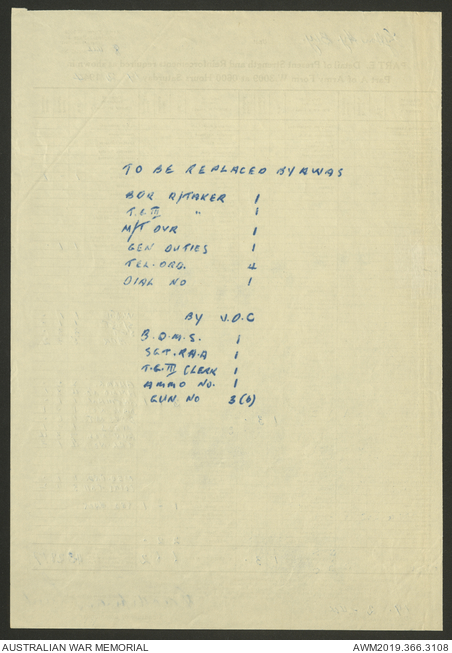 TO BE REPLACED BY AWAS
BDR R/TAKER 1
T.G.III " 1
M/T DVR 1
GEN DUTIES 1
TEL. ORD. 4
DIAL NO 1
BY V.D.C
B.O.M.S. 1
SGT. RAA 1
T.G.III CLERK 1
AMMO NO. 1
GUN. NO 3(6)
AUSTRALIAN WAR MEMORIAL
AWM2019.366.3108